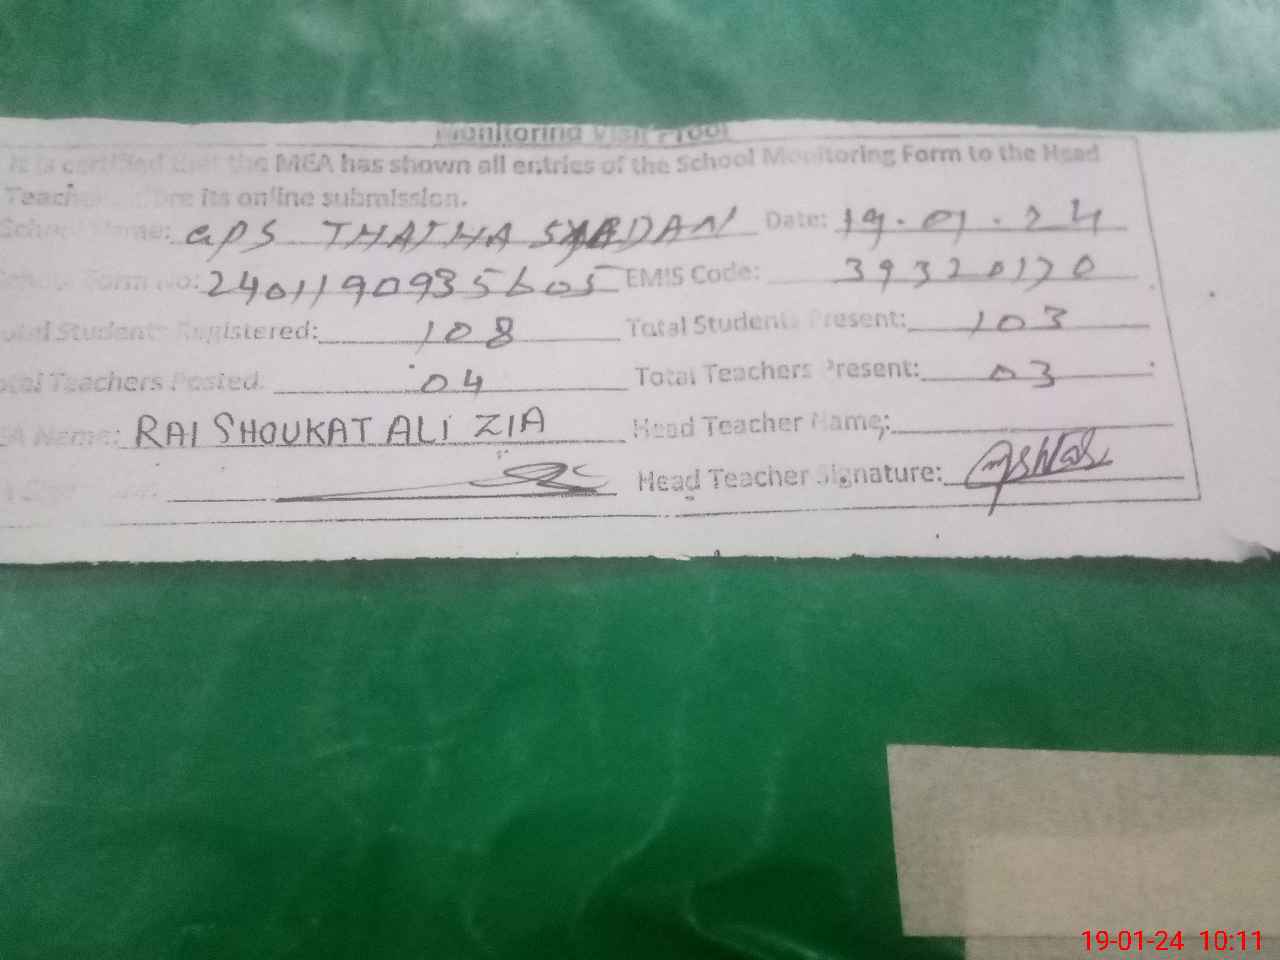 Monitoring Visit Proof
It is certified that the MEA has shown all entries of the School Monitoring Form to the Head
Teacher before its online submission.
School Name: GPS THATHA Date: 19.01.24
School Form No: 2401190935605 EMIS Code: 39320170
Total Students Registered: 108 Total Students Present: 103
Total Teachers Posted: 04 Total Teachers Present: 03
MEA Name: RAI SHOUKAT ALI ZIA Head Teacher Name:
Head Teacher Signature:
19-01-24 10:11